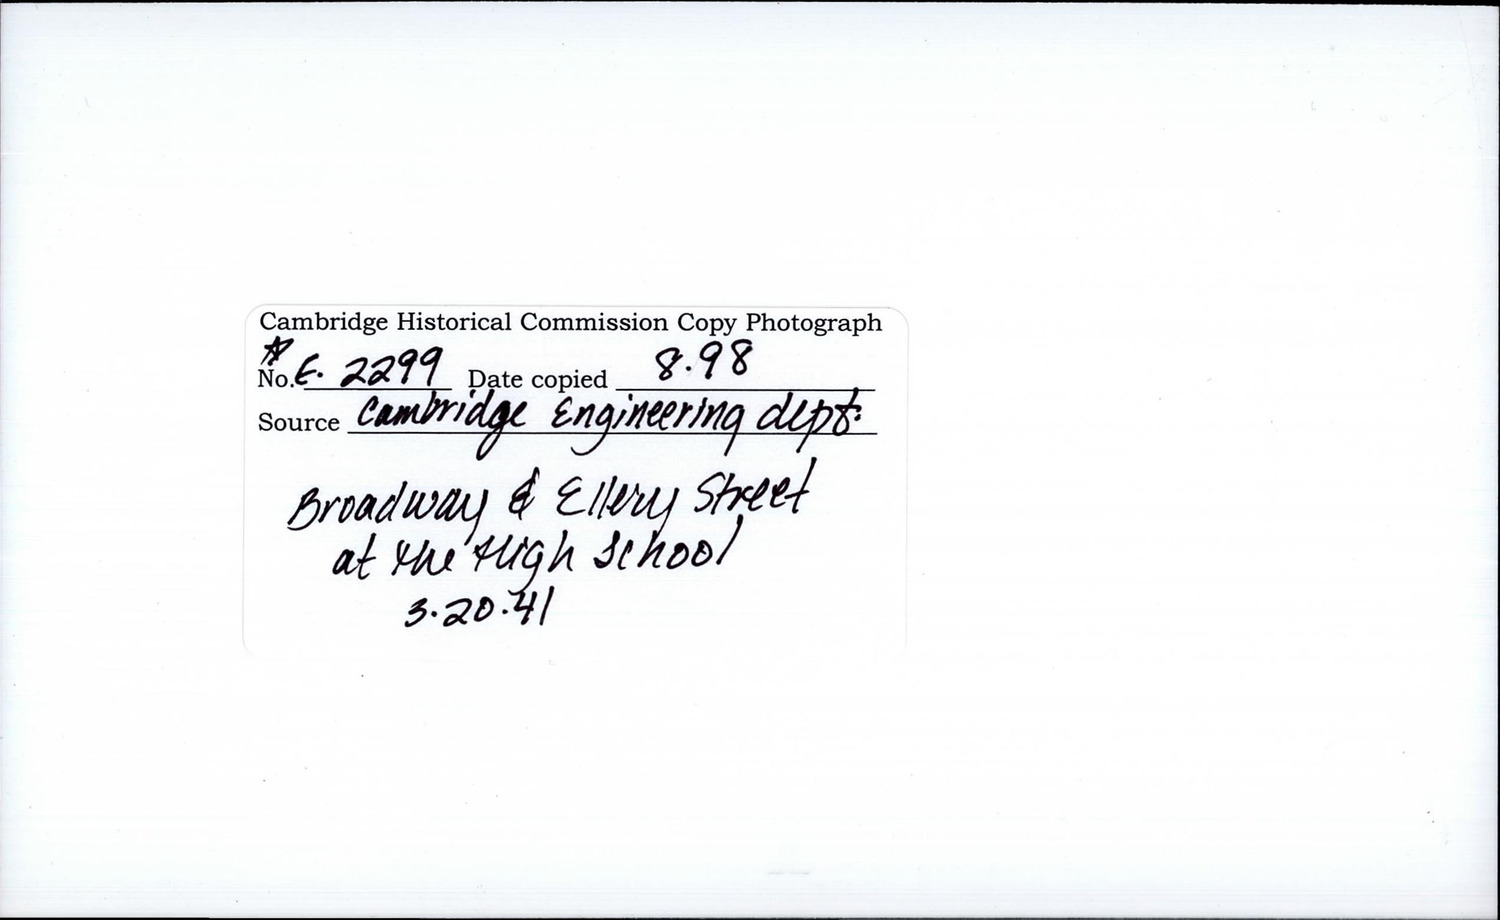 Cambridge Historical Commission Copy Photograph
No. E. 2299 Date copied 8.98
Source Cambridge Engineering dept.
Broadway & Ellery Street
at the High School
3.20.41